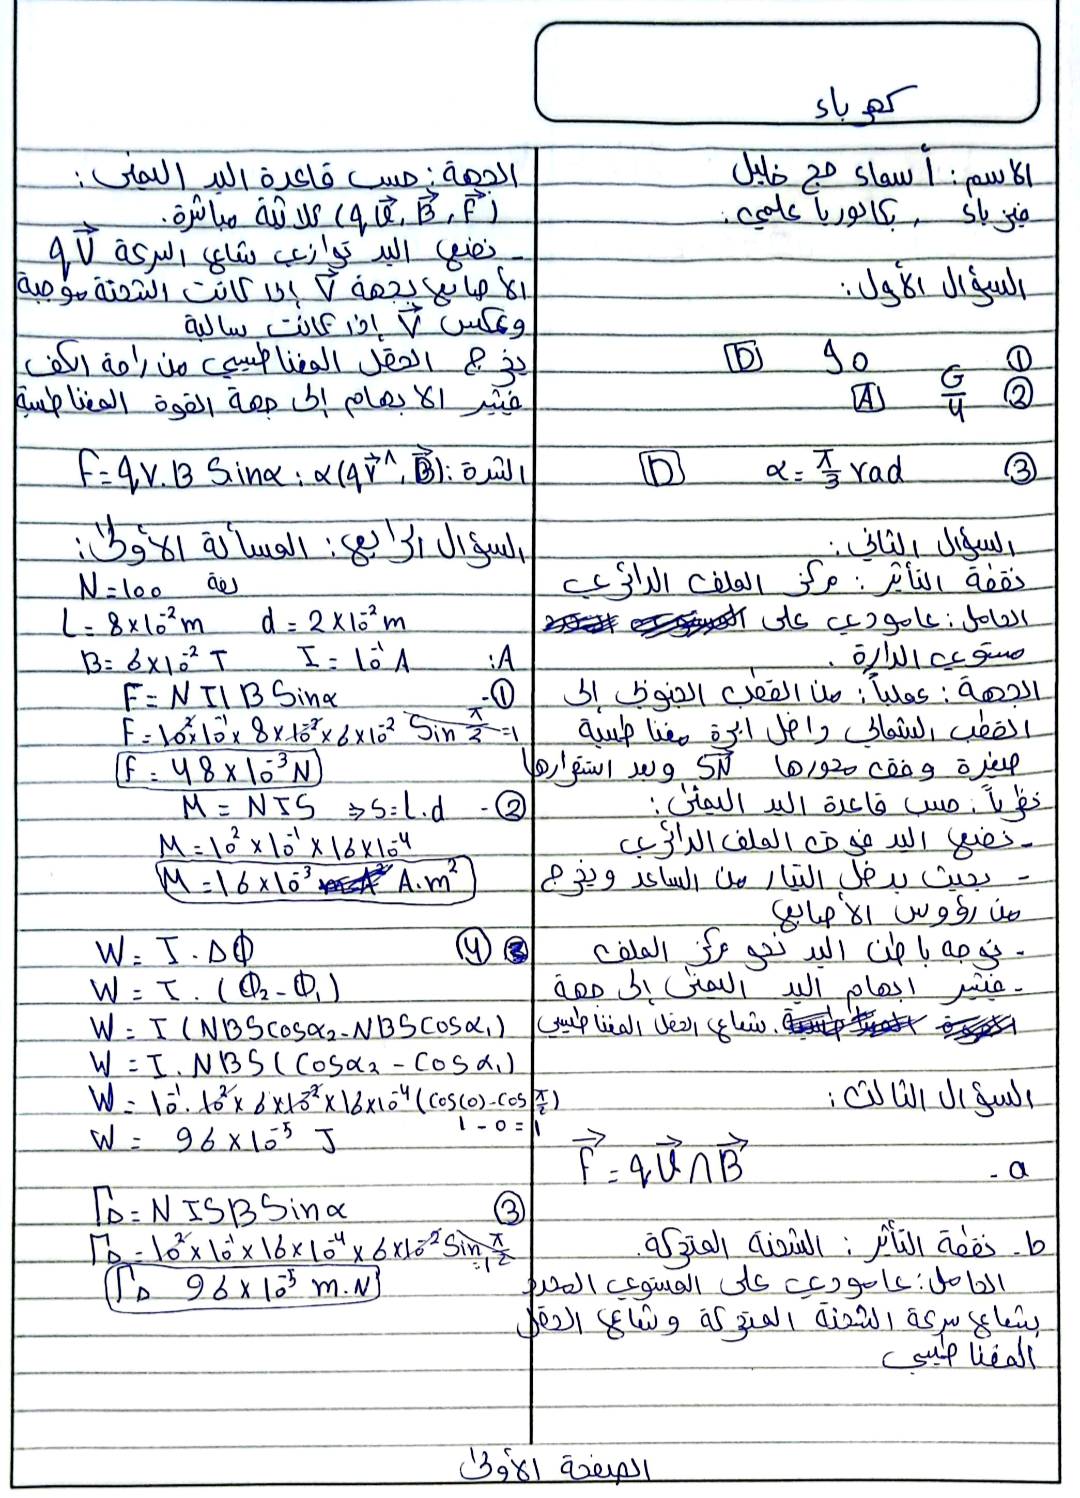 كهرباء
الاسم: أسماء حج خليل
فيزياء، بكالوريا علمي.
السؤال الأول:
① 90 D
② G/4 A
③ α = π/3 rad D
السؤال الثاني:
نقطة التأثير: مركز الملف الدائري
الحامل: عامودي على
مستوي الدارة.
الجهة: عملياً: من القطب الجنوبي إلى
القطب الشمالي داخل إبرة مغناطيسية
صغيرة وفق محورها SN⃗ وبعد استقرارها
نظرياً: حسب قاعدة اليد اليمنى:
- نضع اليد فوق الملف الدائري
- بحيث يدخل التيار من الساعد ويخرج
من رؤوس الأصابع
- نوجه باطن اليد نحو مركز الملف
- فيشير ابهام اليد اليمنى إلى جهة
شعاع الحقل المغناطيسي
السؤال الثالث:
a- F⃗ = qV⃗ ∧ B⃗
b- نقطة التأثير: الشحنة المتحركة.
الحامل: عامودي على المستوي المحدد
بشعاع سرعة الشحنة المتحركة وشعاع الحقل
المغناطيسي
الجهة: حسب قاعدة اليد اليمنى:
(qV⃗, B⃗, F⃗) ثلاثية مباشرة.
- نضع اليد توازي شعاع السرعة qV⃗
الأصابع بجهة V⃗ إذا كانت الشحنة موجبة
وعكس V⃗ إذا كانت سالبة
يخرج الحقل المغناطيسي من راحة الكف
فيشير الابهام إلى جهة القوة المغناطيسية
الشدة: F = qV.B Sinα : α(qV⃗^, B⃗)
السؤال الرابع: المسألة الأولى:
N = 100 لفة
L = 8×10⁻² m d = 2×10⁻² m
B = 6×10⁻² T I = 10⁻¹ A :A
①- F = NIlB Sinα
F = 10²×10⁻¹×8×10⁻²×6×10⁻² Sin π/2 = 1
F = 48×10⁻³ N
②- M = NIS ⇒ S = L.d
M = 10²×10⁻¹×16×10⁻⁴
M = 16×10⁻³ A.m²
④ W = I.ΔΦ
W = I.(Φ₂-Φ₁)
W = I(NBScosα₂-NBScosα₁)
W = I.NBS(Cosα₂-Cosα₁)
W = 10⁻¹.10²×6×10⁻²×16×10⁻⁴(cos(0)-cos π/2)
1-0=1
W = 96×10⁻⁵ J
③ Γ_Δ = NISBSinα
Γ_Δ = 10²×10⁻¹×16×10⁻⁴×6×10⁻² Sin π/2 = 1
Γ_Δ 96×10⁻⁵ m.N
الصفحة الأولى